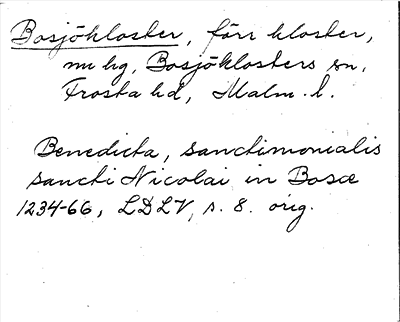 Bosjökloster, förr kloster,
nu hg, Bosjöklosters sn,
Frosta hd, Malm. l.
Benedicta, sanctimonialis
sancti Nicolai in Bosøe
1234-66, LDLV, s. 8. orig.